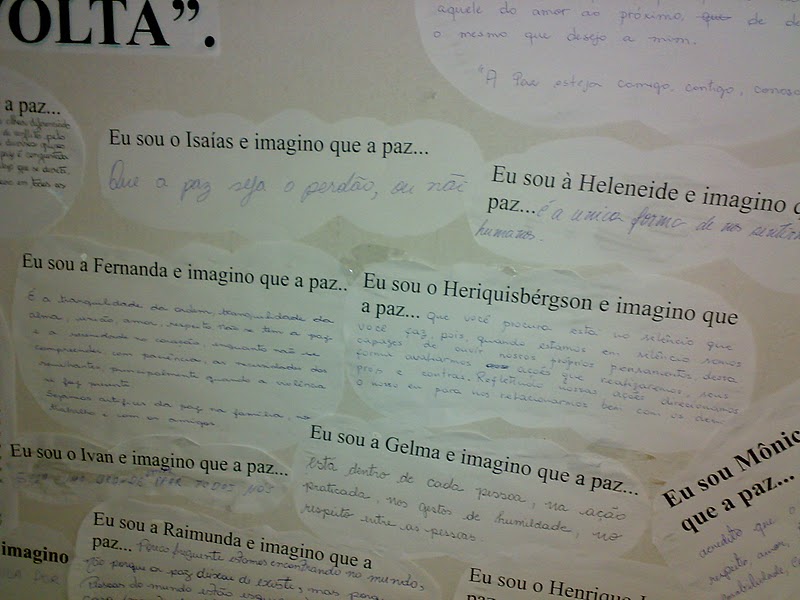 VOLTA”.
aquele do amor ao próximo, que de de
o mesmo que desejo a mim.
"A Paz esteja comigo, contigo, conosc
a paz...
Eu sou o Isaías e imagino que a paz...
Que a paz seja o perdão, ou não
Eu sou à Heleneide e imagino q
paz... é a unica forma de nos sentirm
humanos.
Eu sou a Fernanda e imagino que a paz..
É a tranquilidade da ordem, tranquilidade da
alma, união, amor, respeito não se tem a paz
e a serenidade no coração, enquanto não se
compreender, com paciência, as necessidades dos
semelhantes, principalmente quando a violência
se faz presente.
Sejamos artífices da paz na família, no
trabalho e com os amigos.
Eu sou o Heriquisbérgson e imagino que
a paz... que você procura está no silêncio que
você faz, pois, quando estamos em silêncio somos
capazes de ouvir nossos próprios pensamentos, dessa
forma avaliarmos as ações que realizaremos, seus
prós e contras. Refletindo nossas ações direcionamos
o nosso eu para nos relacionarmos bem com os dem
Eu sou o Ivan e imagino que a paz...
Eu sou a Gelma e imagino que a paz...
está dentro de cada pessoa, na ação
praticada, nos gestos de humildade, no
respeito entre as pessoas.
Eu sou Mônic
que a paz...
acredito que o
respeito, amor,
Eu sou a Raimunda e imagino que a
paz... Pouco frequente estamos encontrando no mundo,
não porque a paz deixou de existi, mas porque
Pessoas do mundo estão
imagino
Eu sou o Henrique
paz...